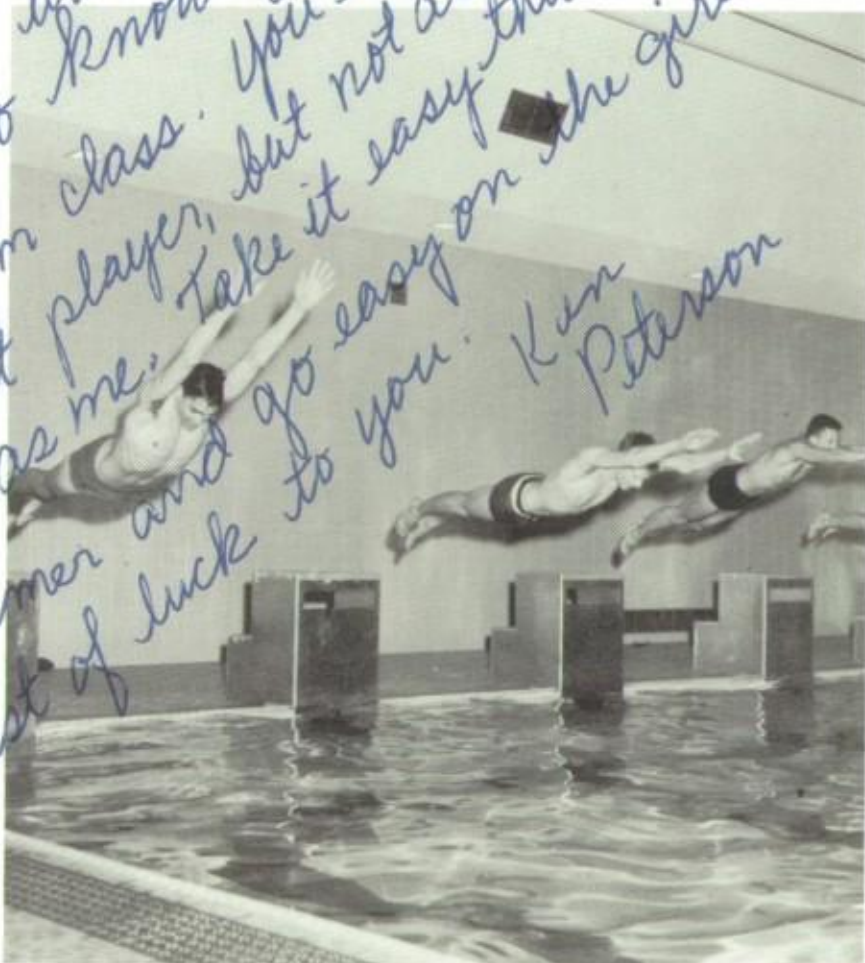 know
class. You
player, but not a
as me. Take it easy
and go easy on the
of luck to you.
Ken
Peterson